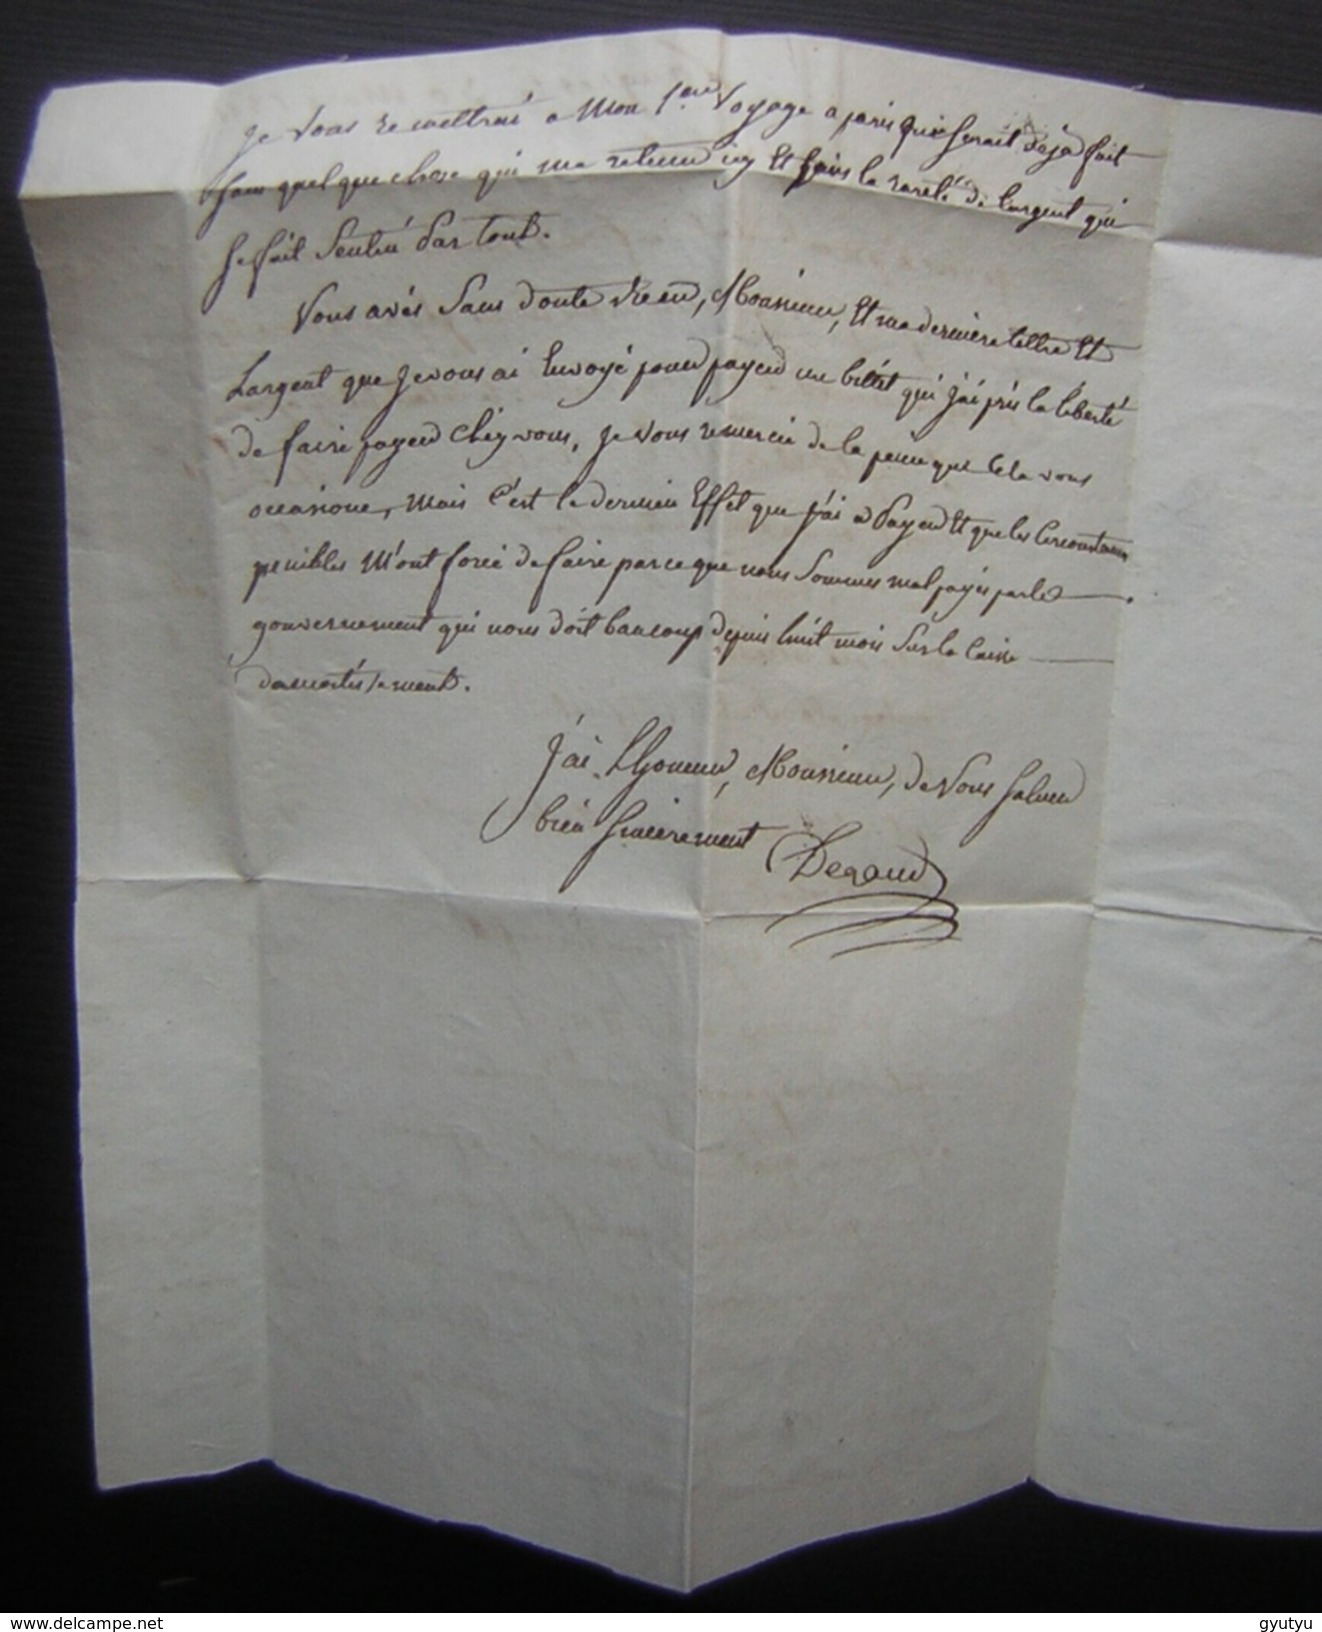 Je Vous remettrai a Mon 1er Voyage a paris qui serait déja fait
sans quelque chose qui me retenu icy Et puis la rareté de largent qui
se fait Sentir Par tout.
Vous avés Sans doute recu, Monsieur, Et ma derniere lettre Et
Largent que Je vous ai Envoyé pour payer un billet qui J'ai pris la liberté
de faire payer Chéz vous, Je vous remercie de la peine que Cela vous
occasione, mais C'est le dernier Effet que J'ai a Payer Et que les Circonstances
penibles M'ont forcé de faire parce que nous Sommes mal payés par le
gouvernement qui nous doit baucoup depuis huit mois Sur la Caisse
damortissement.
J'ai L'honneur, Monsieur, de Vous Saluer
bien Sincerement
www.delcampe.net
gyutyu